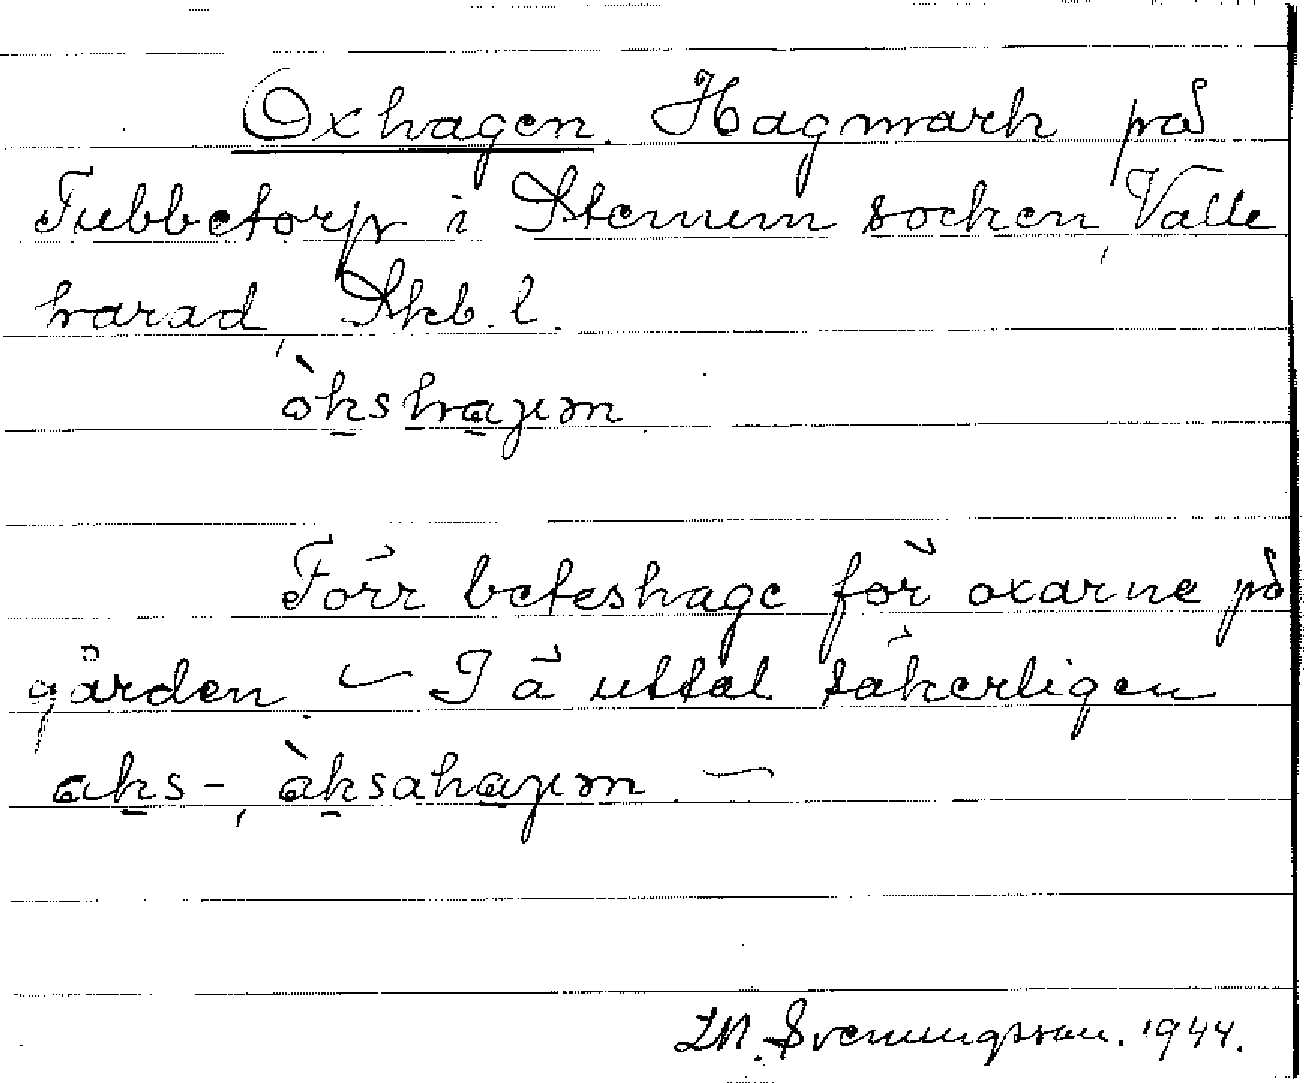 Oxhagen. Hagmark på
Tubbetorp i Stenum socken, Valle
härad, Skb. l.
òkshaɡən.
Förr beteshage för oxarne på
gården. – I ä uttal säkerligen
aks-, àksahaɡən. –
Svenungsson. 1944.